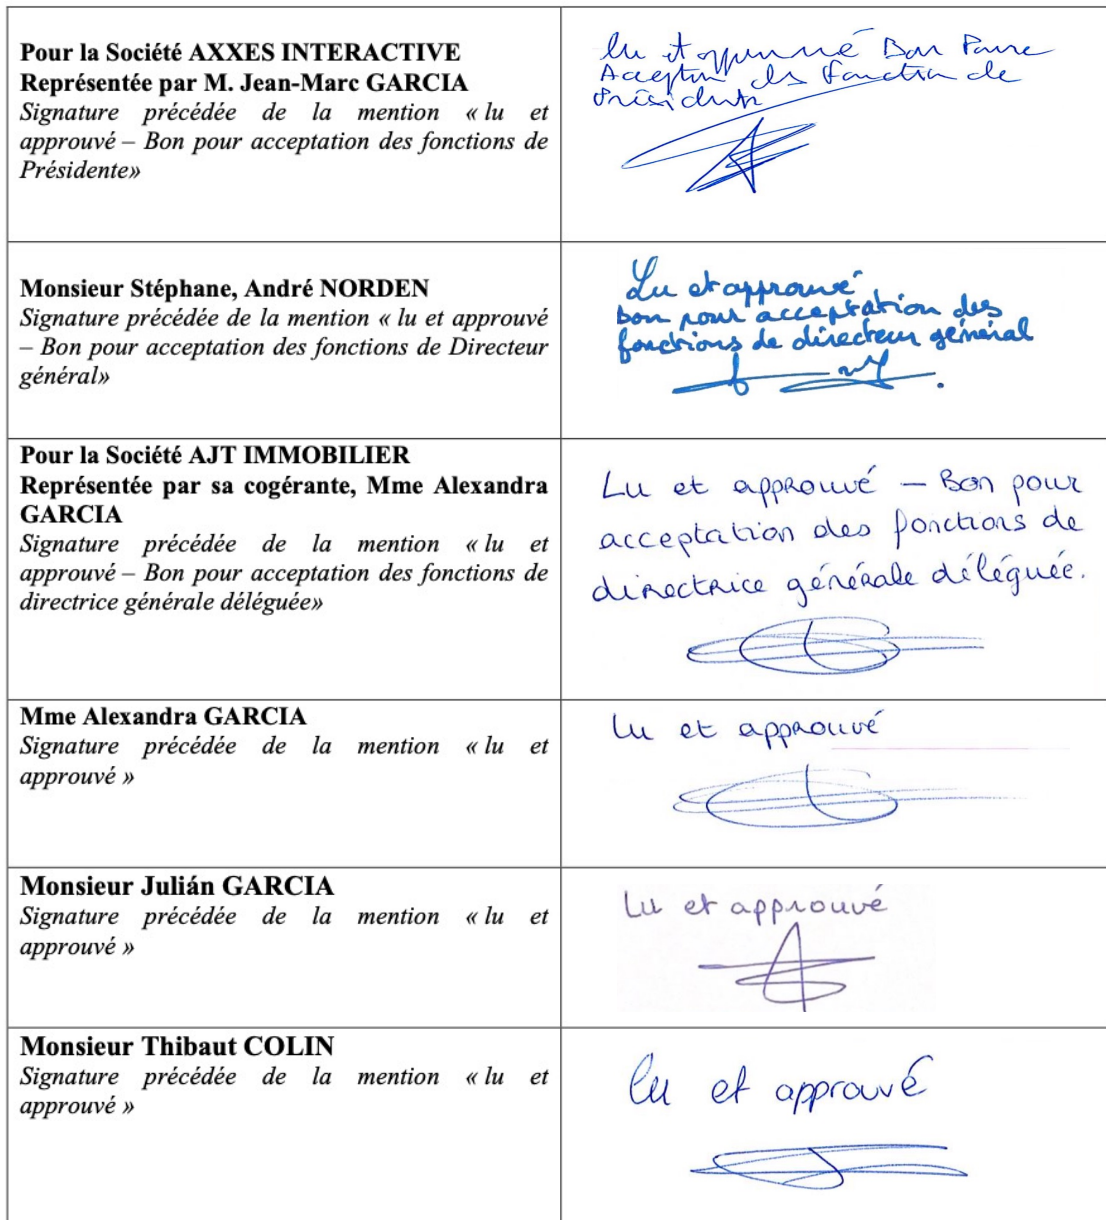 Pour la Société AXXES INTERACTIVE
Représentée par M. Jean-Marc GARCIA
Signature précédée de la mention « lu et
approuvé – Bon pour acceptation des fonctions de
Présidente»
lu et approuvé Bon Pour
Acception des Fonction de
Présidente
Monsieur Stéphane, André NORDEN
Signature précédée de la mention « lu et approuvé
– Bon pour acceptation des fonctions de Directeur
général»
Lu et approuvé
bon pour acceptation des
fonctions de directeur général
Pour la Société AJT IMMOBILIER
Représentée par sa cogérante, Mme Alexandra
GARCIA
Signature précédée de la mention « lu et
approuvé – Bon pour acceptation des fonctions de
directrice générale déléguée»
Lu et approuvé – Bon pour
acceptation des fonctions de
directrice générale déléguée.
Mme Alexandra GARCIA
Signature précédée de la mention « lu et
approuvé »
lu et approuvé
Monsieur Julián GARCIA
Signature précédée de la mention « lu et
approuvé »
Lu et approuvé
Monsieur Thibaut COLIN
Signature précédée de la mention « lu et
approuvé »
lu et approuvé